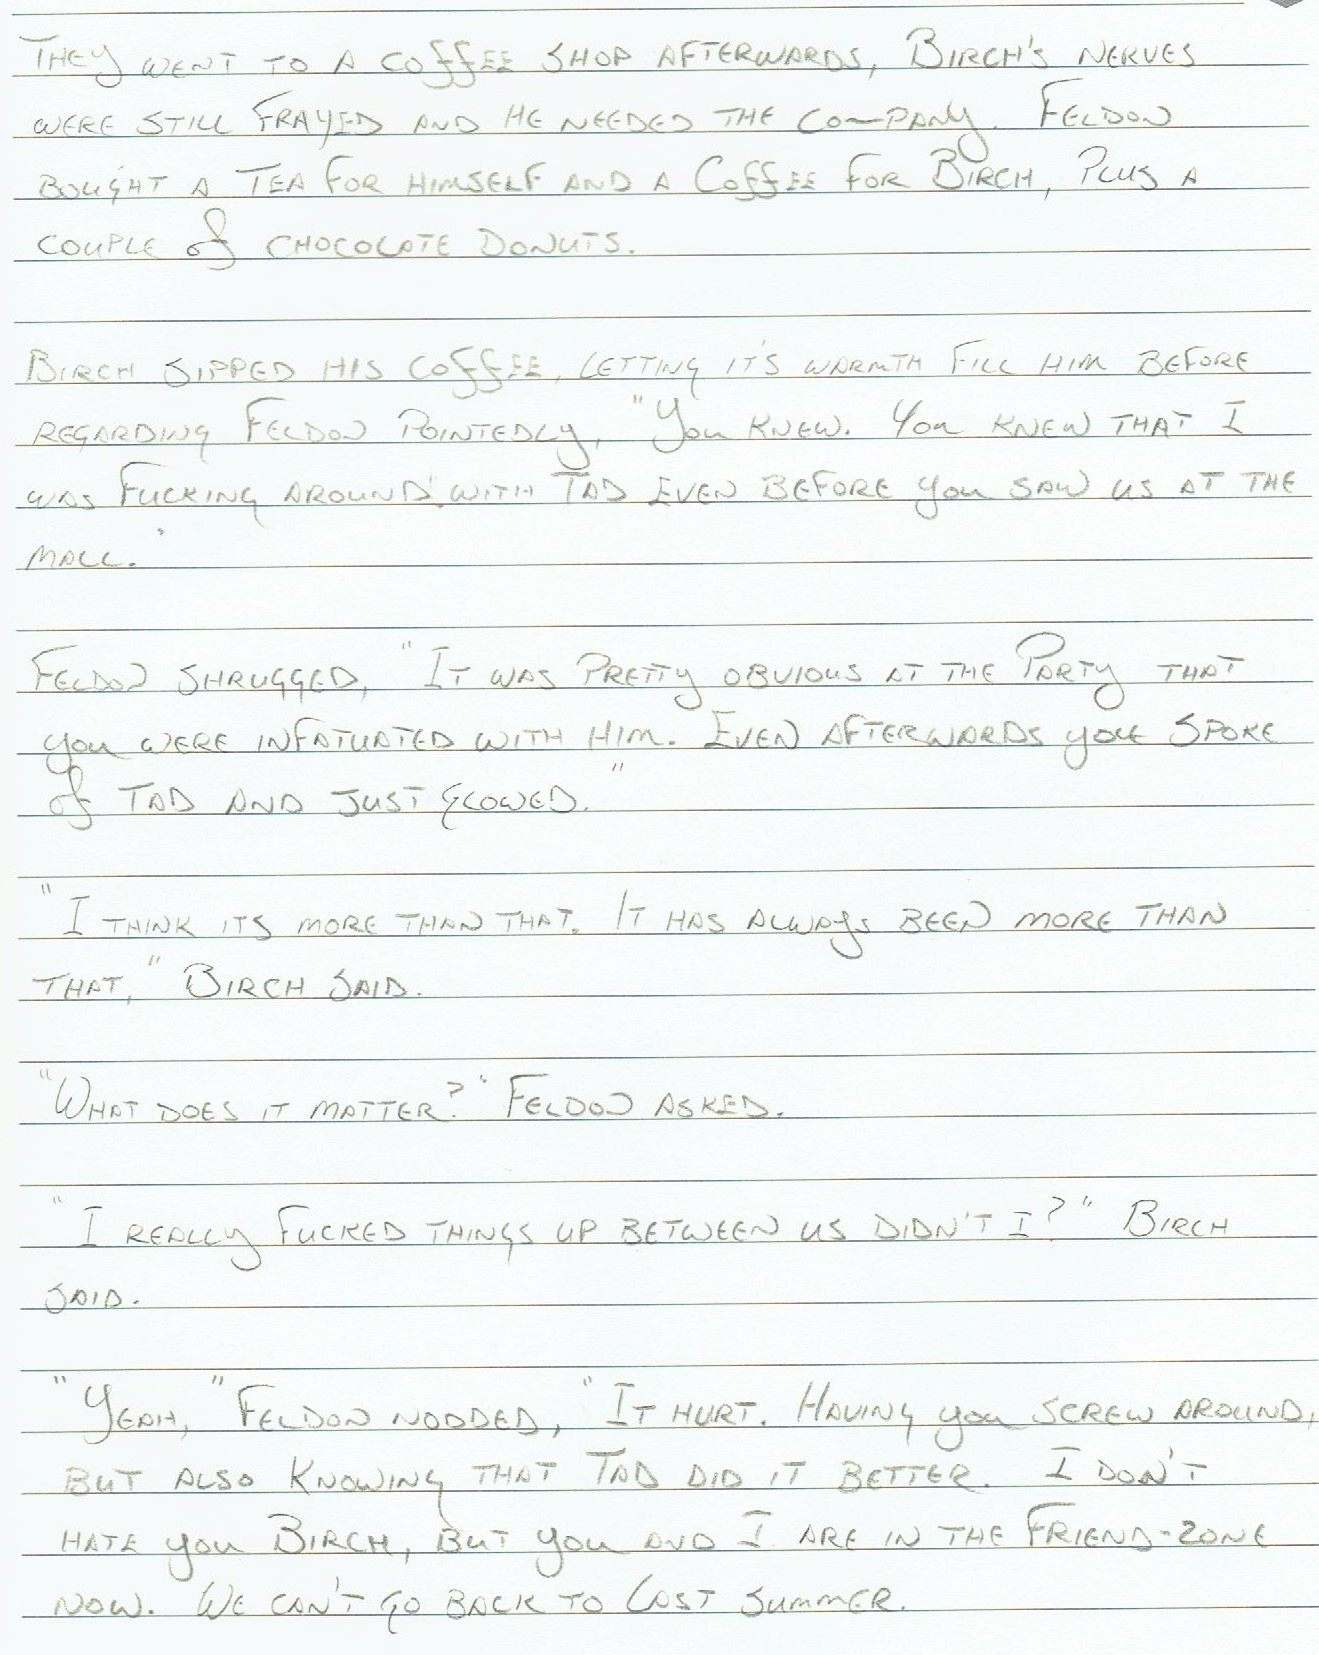 They went to a coffee shop afterwards, Birch's nerves
were still frayed and he needed the company. Feldon
bought a tea for himself and a coffee for Birch, plus a
couple of chocolate donuts.
Birch sipped his coffee, letting it's warmth fill him before
regarding Feldon pointedly, "You knew. You knew that I
was fucking around with Tad even before you saw us at the
mall."
Feldon shrugged, "It was pretty obvious at the party that
you were infatuated with him. Even afterwards you spoke
of Tad and just glowed."
"I think its more than that. It has always been more than
that," Birch said.
"What does it matter?" Feldon asked.
"I really fucked things up between us didn't I?" Birch
said.
"Yeah," Feldon nodded, "It hurt. Having you screw around,
but also knowing that Tad did it better. I don't
hate you Birch, but you and I are in the friend-zone
now. We can't go back to last summer.